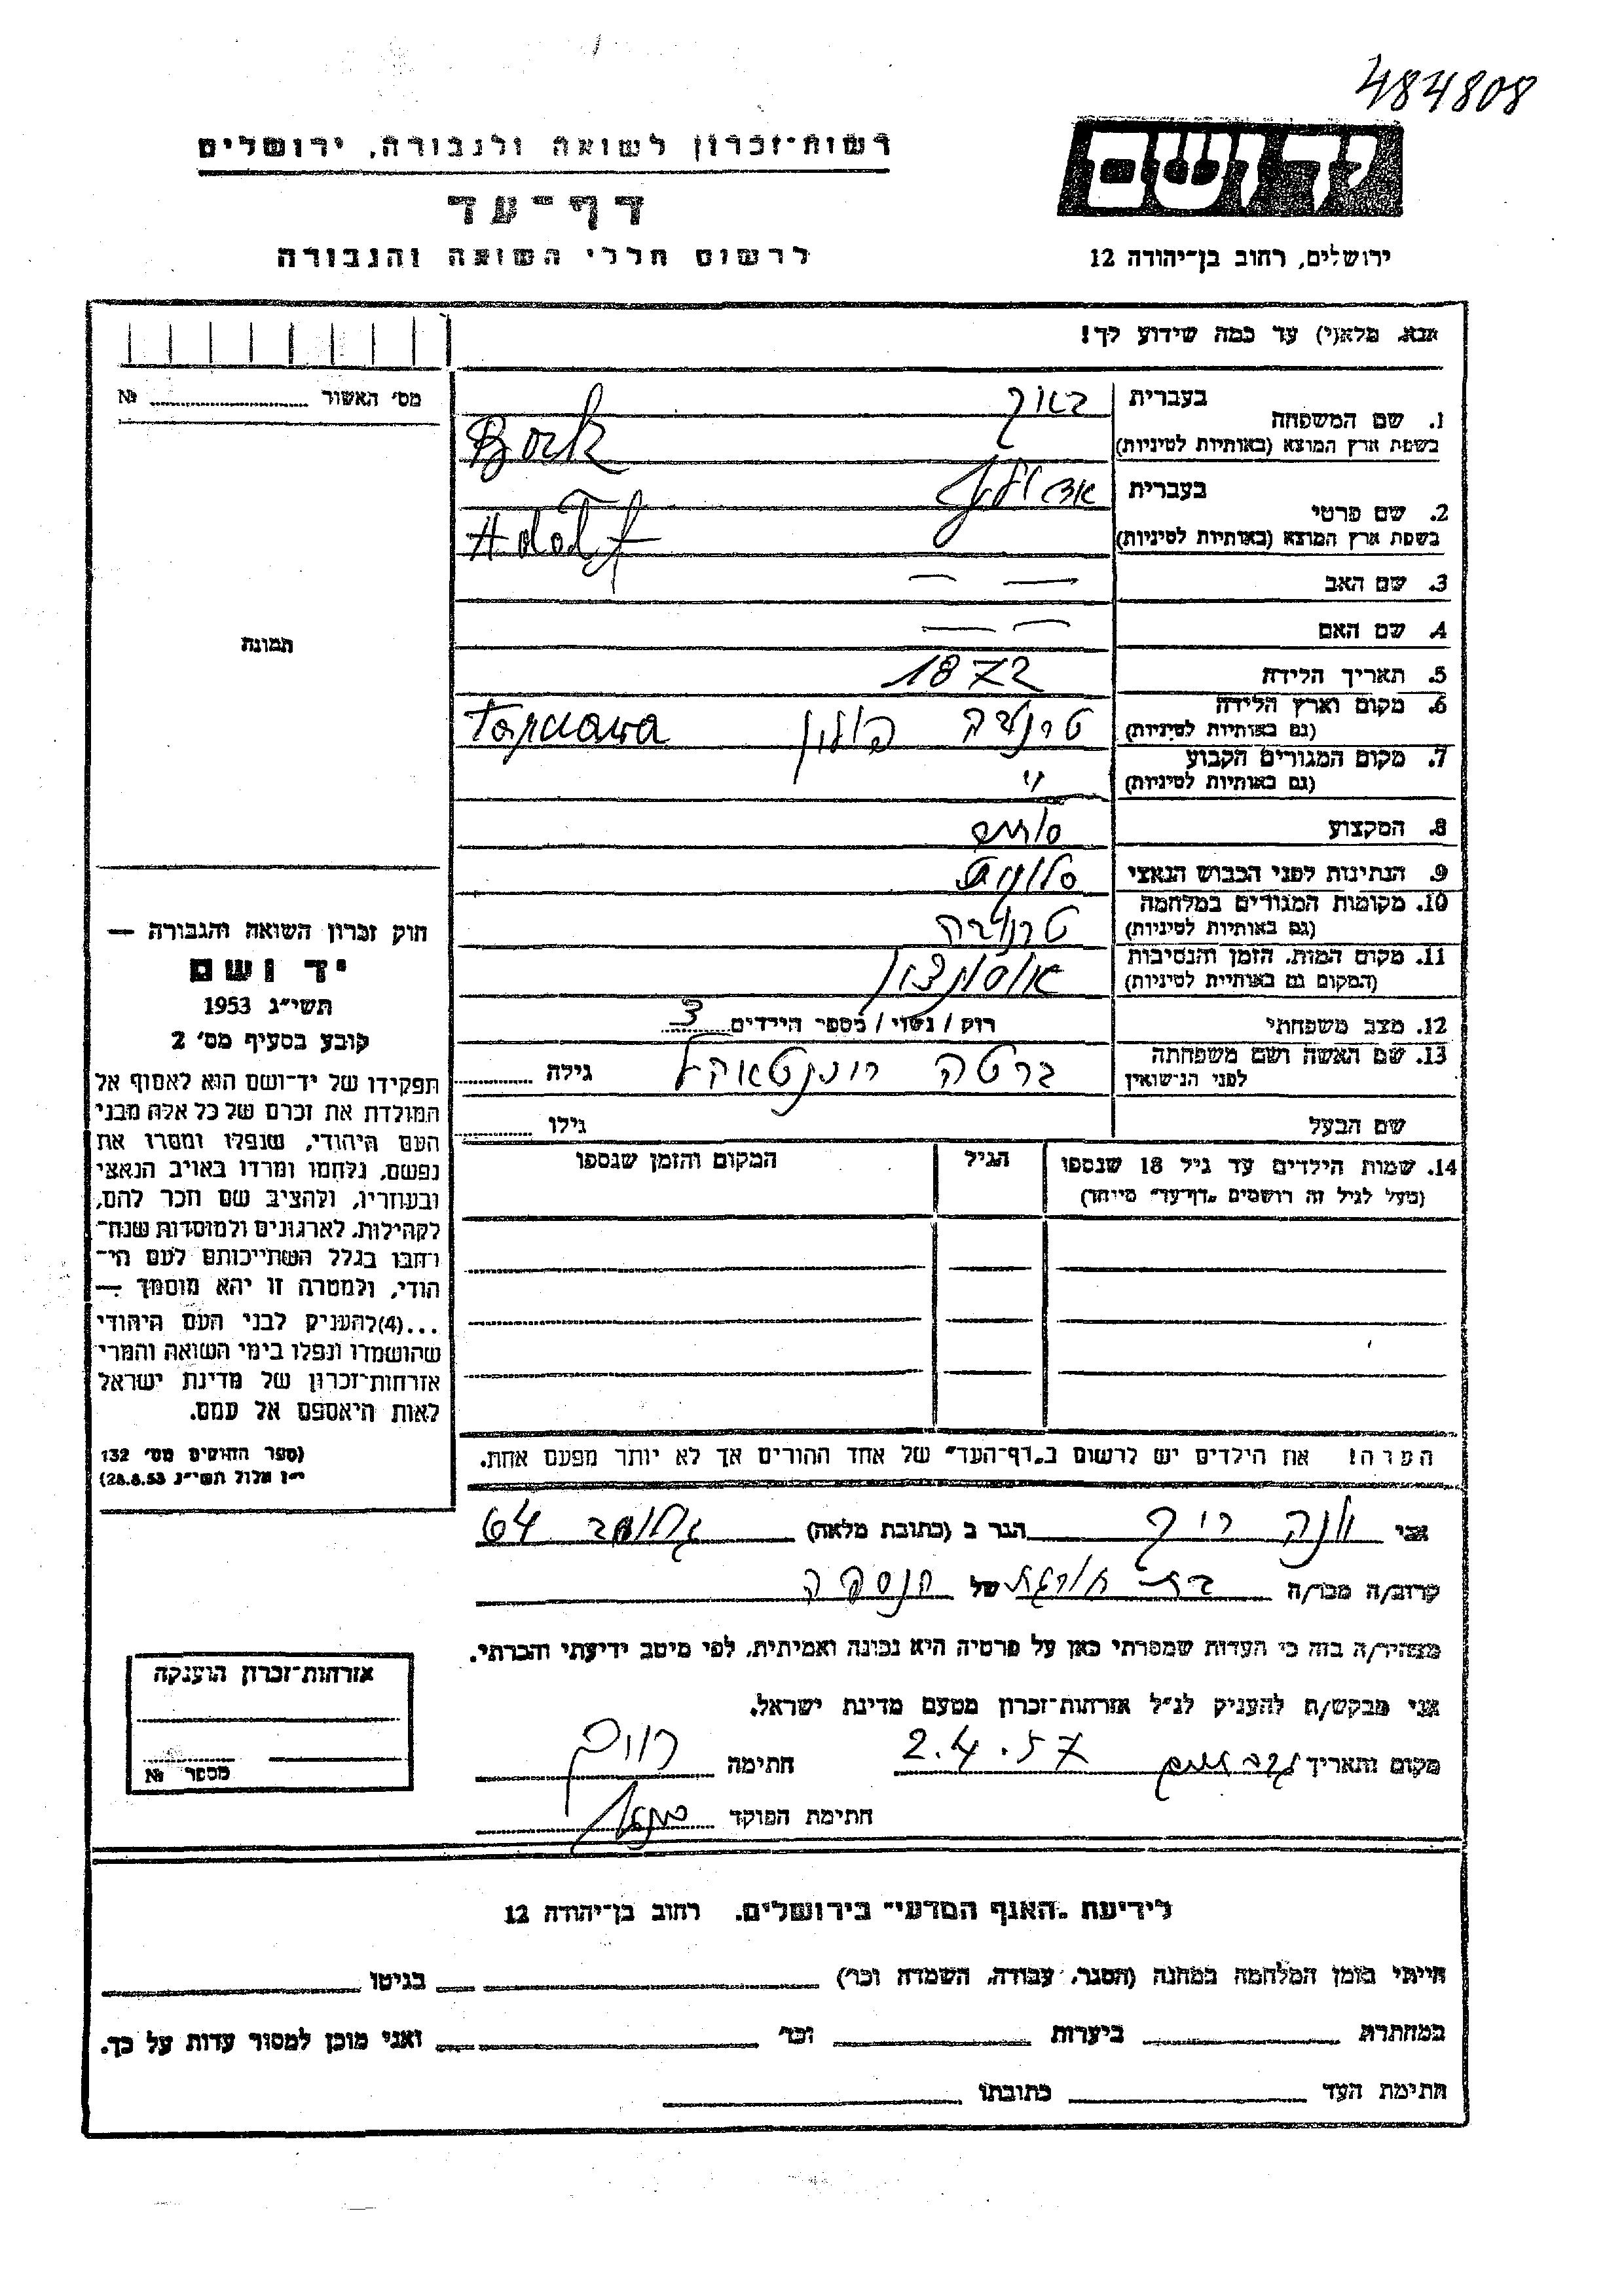 484808
יד ושם
ירושלים, רחוב בן־יהודה 12
רשות־זכרון לשואה ולגבורה, ירושלים
דף־עד
לרשום חללי השואה והגבורה
אנא, מלא(י) עד כמה שידוע לך!
מס׳ האשור № ............
1. שם המשפחה
בעברית באוק
בשפת ארץ המוצא (באותיות לטיניות) Bock
2. שם פרטי
בעברית אדולף
בשפת ארץ המוצא (באותיות לטיניות) Adolf
3. שם האב — —
4. שם האם — —
5. תאריך הלידה 1872
6. מקום וארץ הלידה
(גם באותיות לטיניות) טרנובה פולין
7. מקום המגורים הקבוע
(גם באותיות לטיניות) "
8. המקצוע סוחר
9. הנתינות לפני הכבוש הנאצי
10. מקומות המגורים במלחמה
(גם באותיות לטיניות) טרנובה
11. מקום המות, הזמן והנסיבות
(המקום גם באותיות לטיניות)
12. מצב משפחתי רוק / נשוי / מספר הילדים 3
13. שם האשה ושם משפחתה
לפני הנישואין ברטה גילה ............
שם הבעל גילו ............
14. שמות הילדים עד גיל 18 שנספו
(מעל לגיל זה רושמים „דף־עד״ מיוחד)
הגיל
המקום והזמן שנספו
הערה! את הילדים יש לרשום ב„דף־העד״ של אחד ההורים אך לא יותר מפעם אחת.
תמונה
חוק זכרון השואה והגבורה —
יד ושם
תשי״ג 1953
קובע בסעיף מס׳ 2
תפקידו של יד־ושם הוא לאסוף אל
המולדת את זכרם של כל אלה מבני
העם היהודי, שנפלו ומסרו את
נפשם, נלחמו ומרדו באויב הנאצי
ובעוזריו, ולהציב שם וזכר להם,
לקהילות, לארגונים ולמוסדות שנח־
רבו בגלל השתייכותם לעם הי־
הודי, ולמטרה זו יהא מוסמך —
...(4) להעניק לבני העם היהודי
שהושמדו ונפלו בימי השואה והמרי
אזרחות־זכרון של מדינת ישראל
לאות היאספם אל עמם.
(ספר החוקים מס׳ 132
י״ז אלול תשי״ג 28.8.53)
אני הגר ב (כתובת מלאה) 64
קרוב/ה מכר/ה של
מצהיר/ה בזה כי העדות שמסרתי כאן על פרטיה היא נכונה ואמיתית, לפי מיטב ידיעתי והכרתי.
אני מבקש/ת להעניק לנ״ל אזרחות־זכרון מטעם מדינת ישראל.
מקום ותאריך 2.4.57 חתימה
חתימת הפוקד
אזרחות־זכרון הוענקה
מספר №
לידיעת „האגף המדעי״ בירושלים, רחוב בן־יהודה 12
הייתי בזמן המלחמה במחנה (הסגר, עבודה, השמדה וכו׳) בגיטו
במחתרת ביערות וכו׳ ואני מוכן למסור עדות על כך.
חתימת העד כתובתו